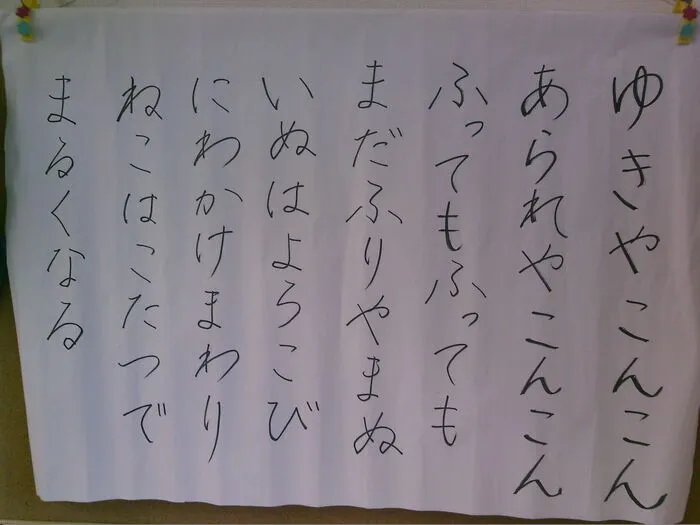 ゆきやこんこん
あられやこんこん
ふってもふっても
まだふりやまぬ
いぬはよろこび
にわかけまわり
ねこはこたつで
まるくなる